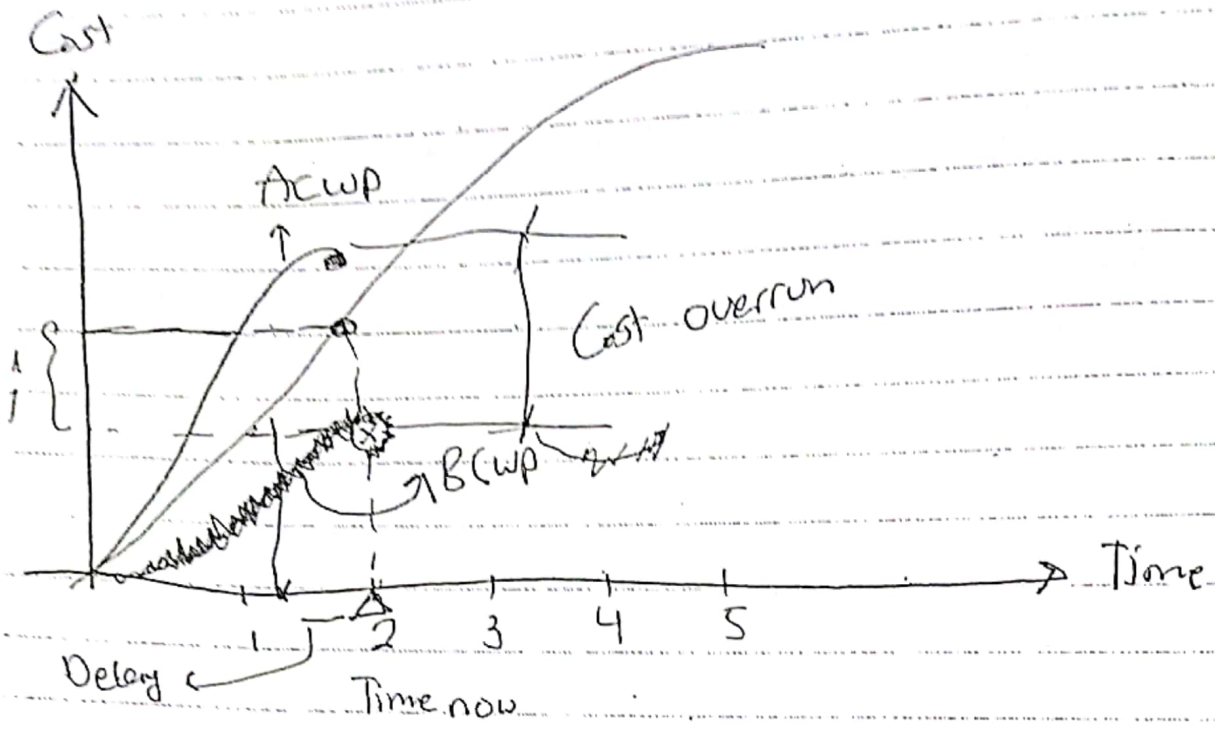 Cost
ACWP
Cost overrun
BCWP
Time
1 2 3 4 5
Delay
Time now